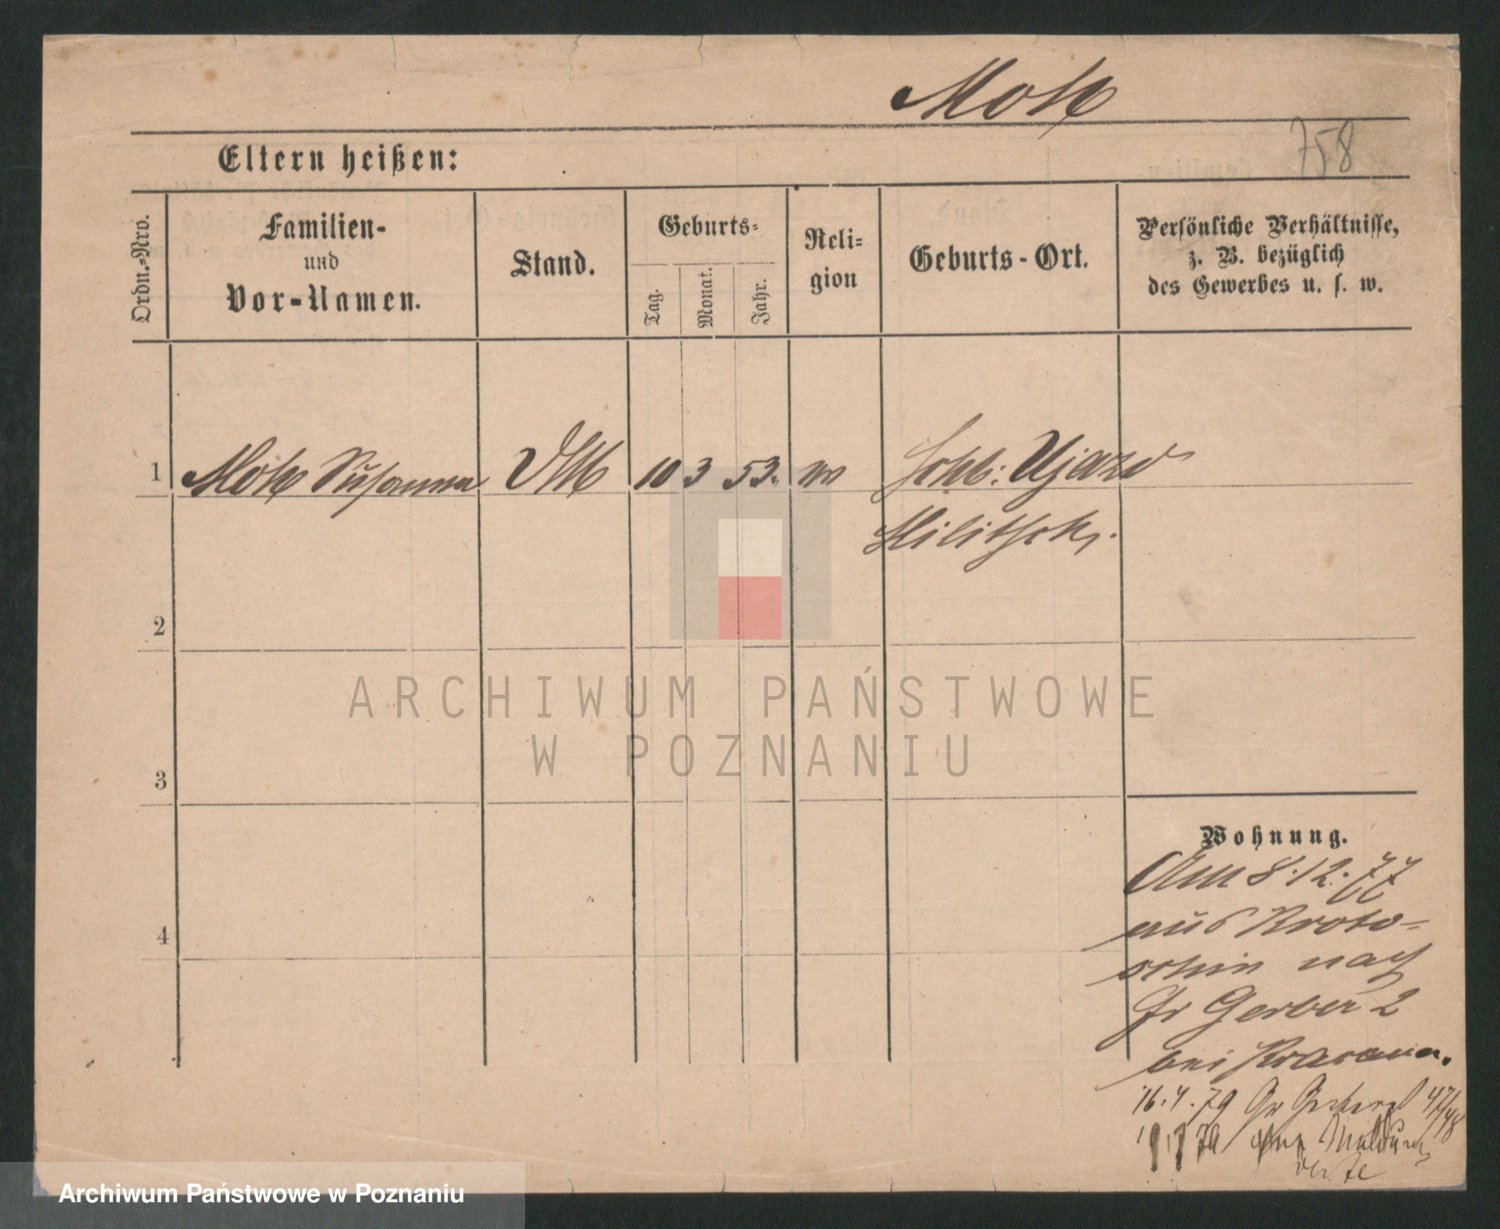 Mok
758
Eltern heißen:
Ordn.-Nro.
Familien-
und
Vor-Namen.
Stand.
Geburts-
Tag.
Monat.
Jahr.
Reli-
gion
Geburts-Ort.
Persönliche Verhältnisse,
z. B. bezüglich
des Gewerbes u. s. w.
1 Susanna 10 3 53. Ujazd
Militsch.
2
3
4
Wohnung.
Am 8.12.77
aus Kroto-
schin nach
Gr Gerber 2
bei
16.4.79 Gr 47/48
79
ARCHIWUM PAŃSTWOWE
W POZNANIU
Archiwum Państwowe w Poznaniu